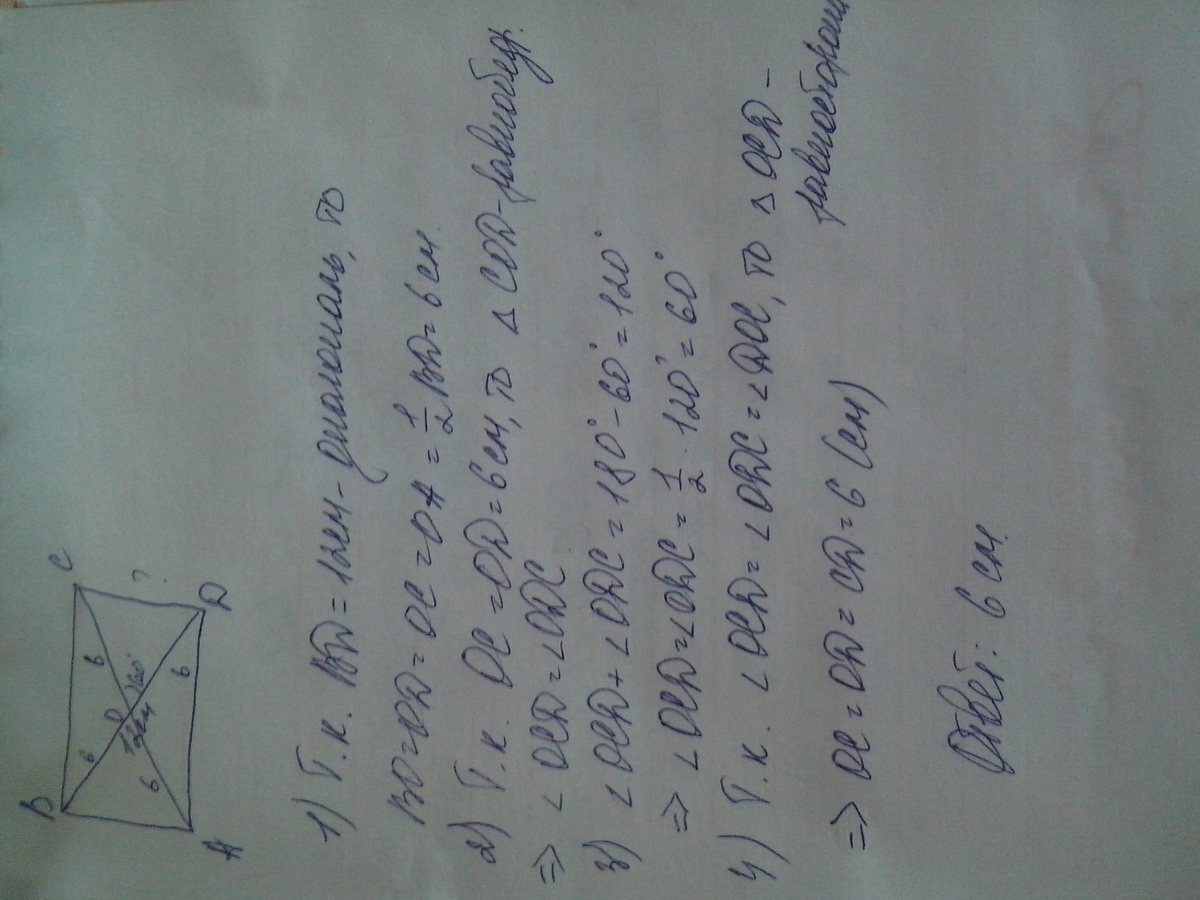 B
C
6
6
O
12см
60°
?
6
6
A
D
1) Т.к. BD = 12см - диагональ, то
BO = OD = OC = OA = 1/2 BD = 6 см.
2) Т.к. OC = OD = 6 см, то △ COD - равнобедр.
=> ∠ OCD = ∠ ODC
3) ∠ OCD + ∠ ODC = 180° - 60° = 120°
=> ∠ OCD = ∠ ODC = 1/2 · 120° = 60°
4) Т.к. ∠ OCD = ∠ ODC = ∠ DOC, то △ OCD -
равносторон
=> OC = OD = CD = 6 (см)
Ответ: 6 см